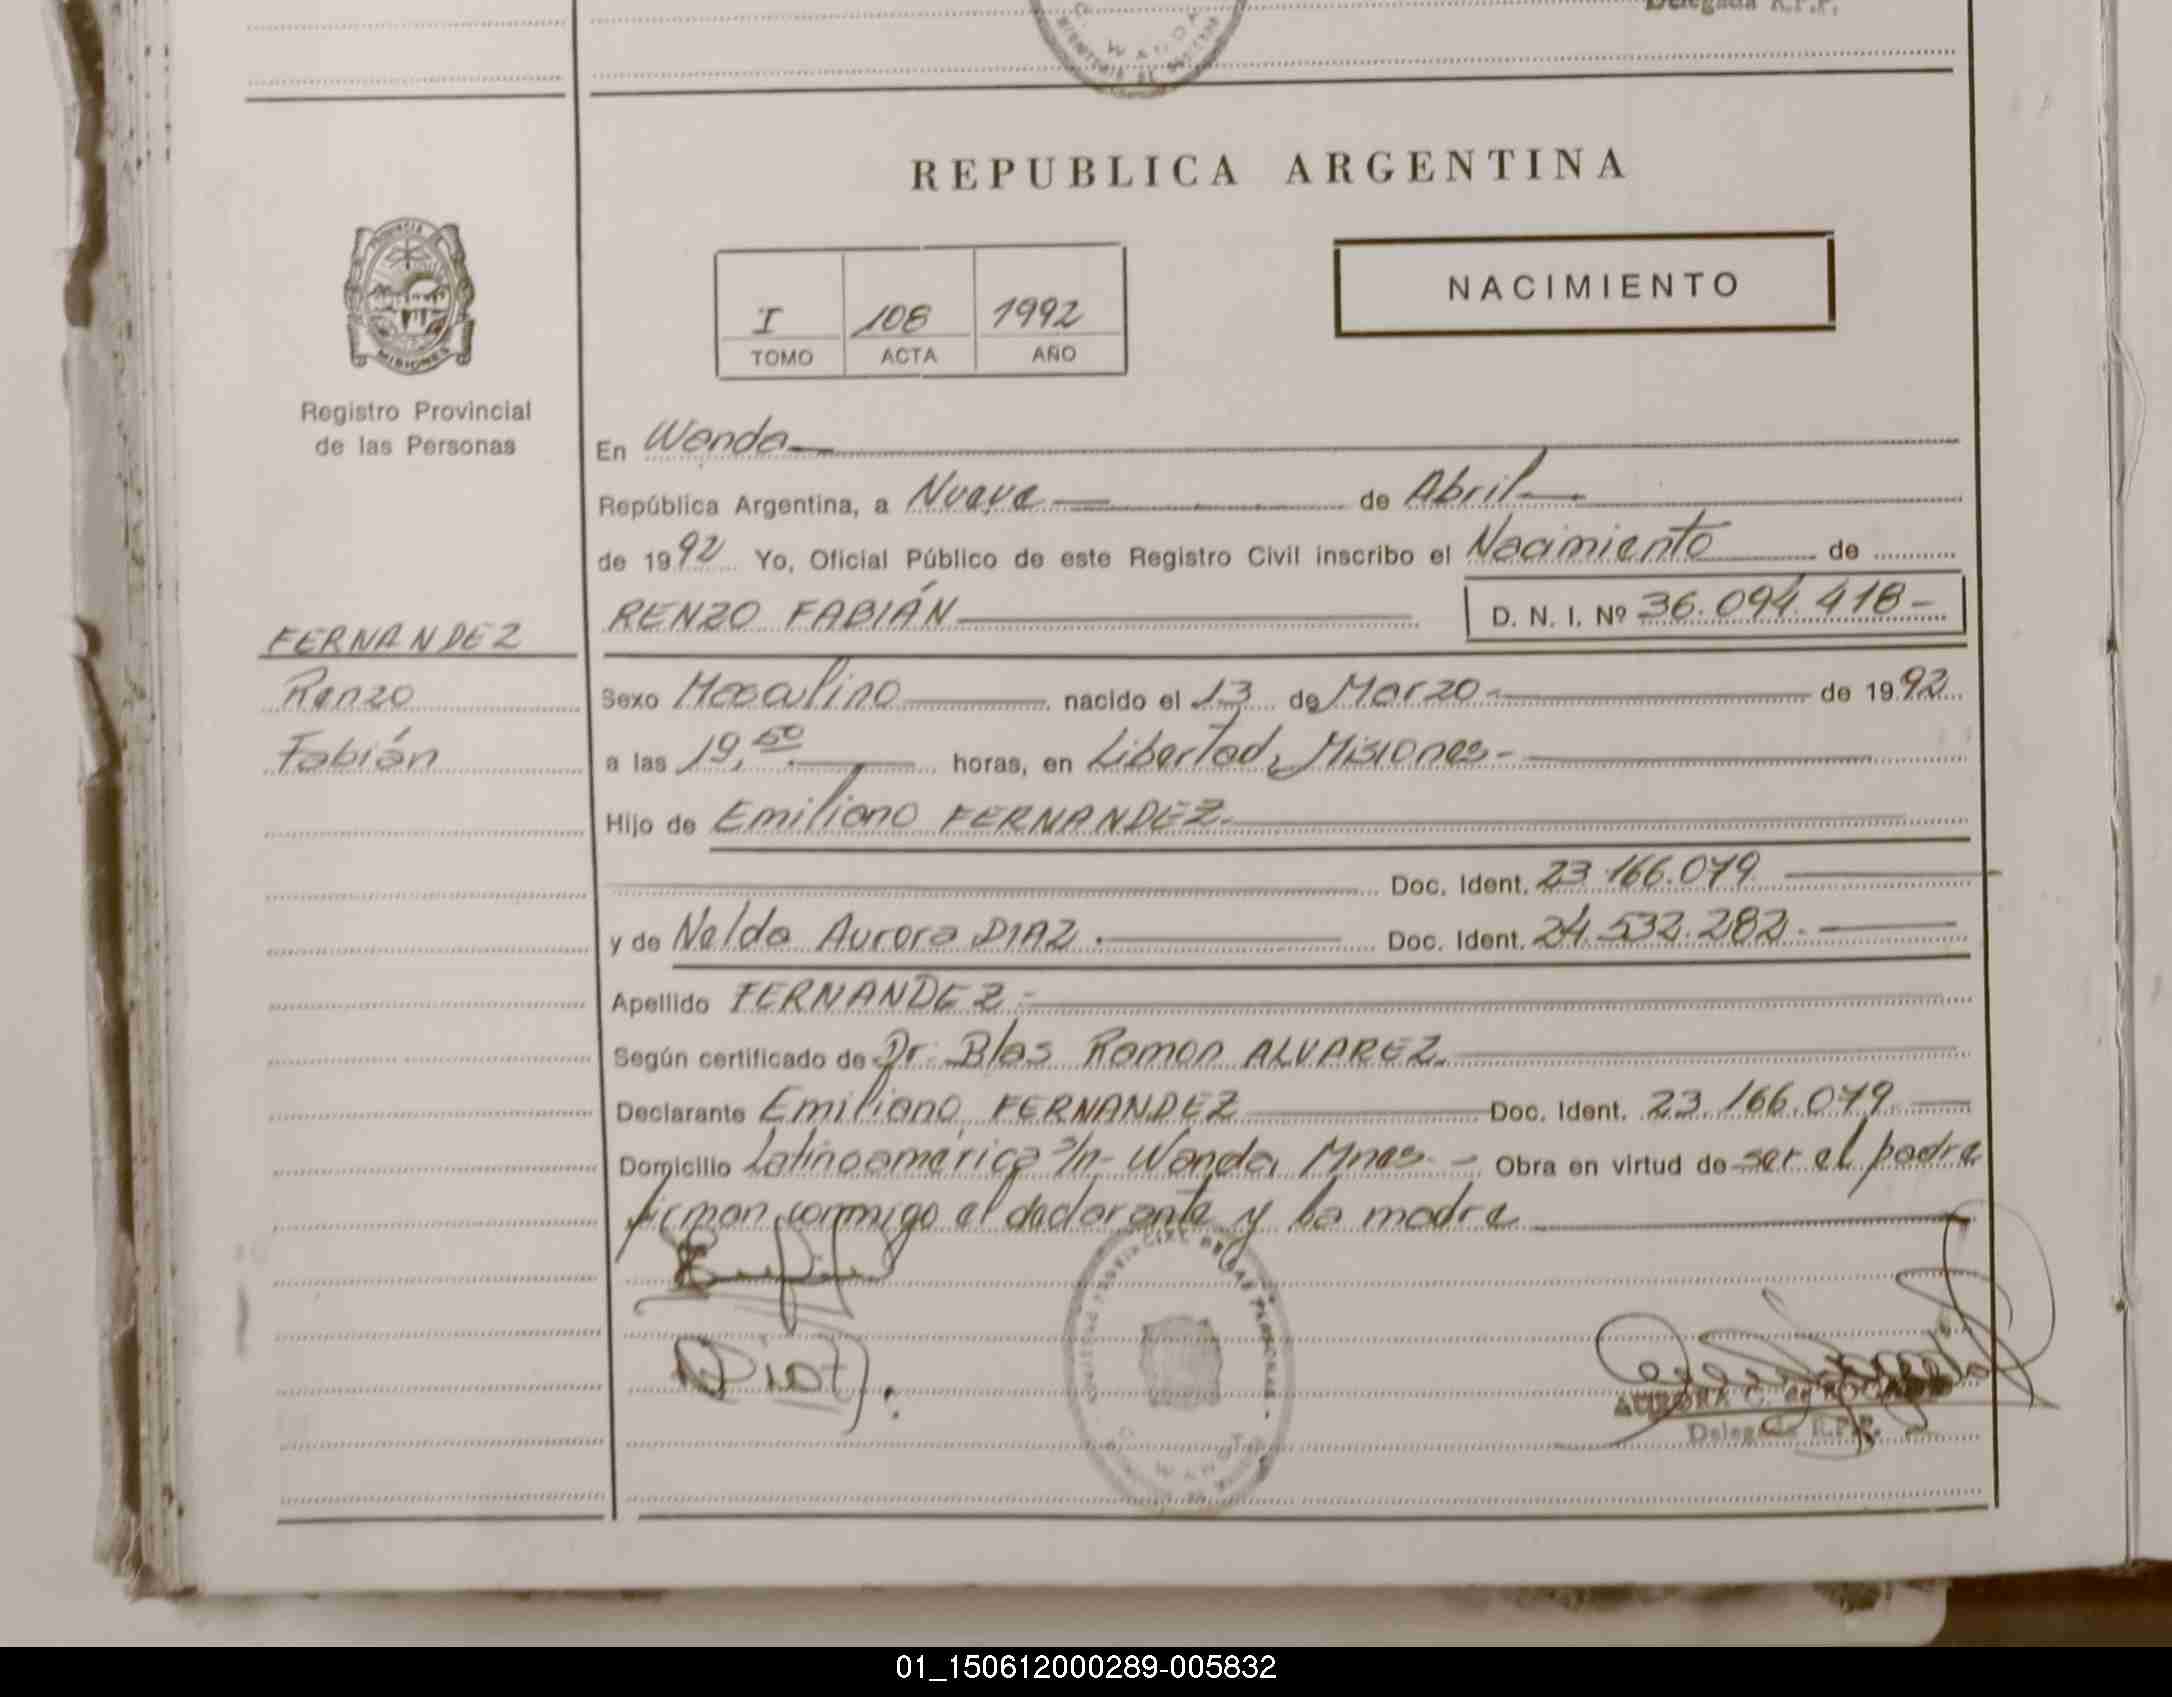 Delegada R.P.P.
REPUBLICA ARGENTINA
NACIMIENTO
I 108 1992
TOMO ACTA AÑO
PROVINCIA
MISIONES
Registro Provincial
de las Personas
FERNANDEZ
Renzo
Fabián
En Wanda
República Argentina, a Nueve de Abril
de 1992 Yo, Oficial Público de este Registro Civil inscribo el Nacimiento de
RENZO FABIÁN D. N. I. Nº 36.094.418-
Sexo Masculino nacido el 13 de Marzo- de 1992
a las 19,50 horas, en Libertad, Misiones-
Hijo de Emiliano FERNANDEZ.
Doc. Ident. 23.166.079
y de Nelda Aurora DIAZ. Doc. Ident. 24.532.282.-
Apellido FERNANDEZ.-
Según certificado de Dr. Blas Ramon ALVAREZ.
Declarante Emiliano FERNANDEZ Doc. Ident. 23.166.079
Domicilio Latinoamérica s/n- Wanda, Mnes.- Obra en virtud de ser el padre
firman conmigo el declarante y la madre
Diaz
AURORA C. de
Delegada R.P.P.
WANDA
01_150612000289-005832